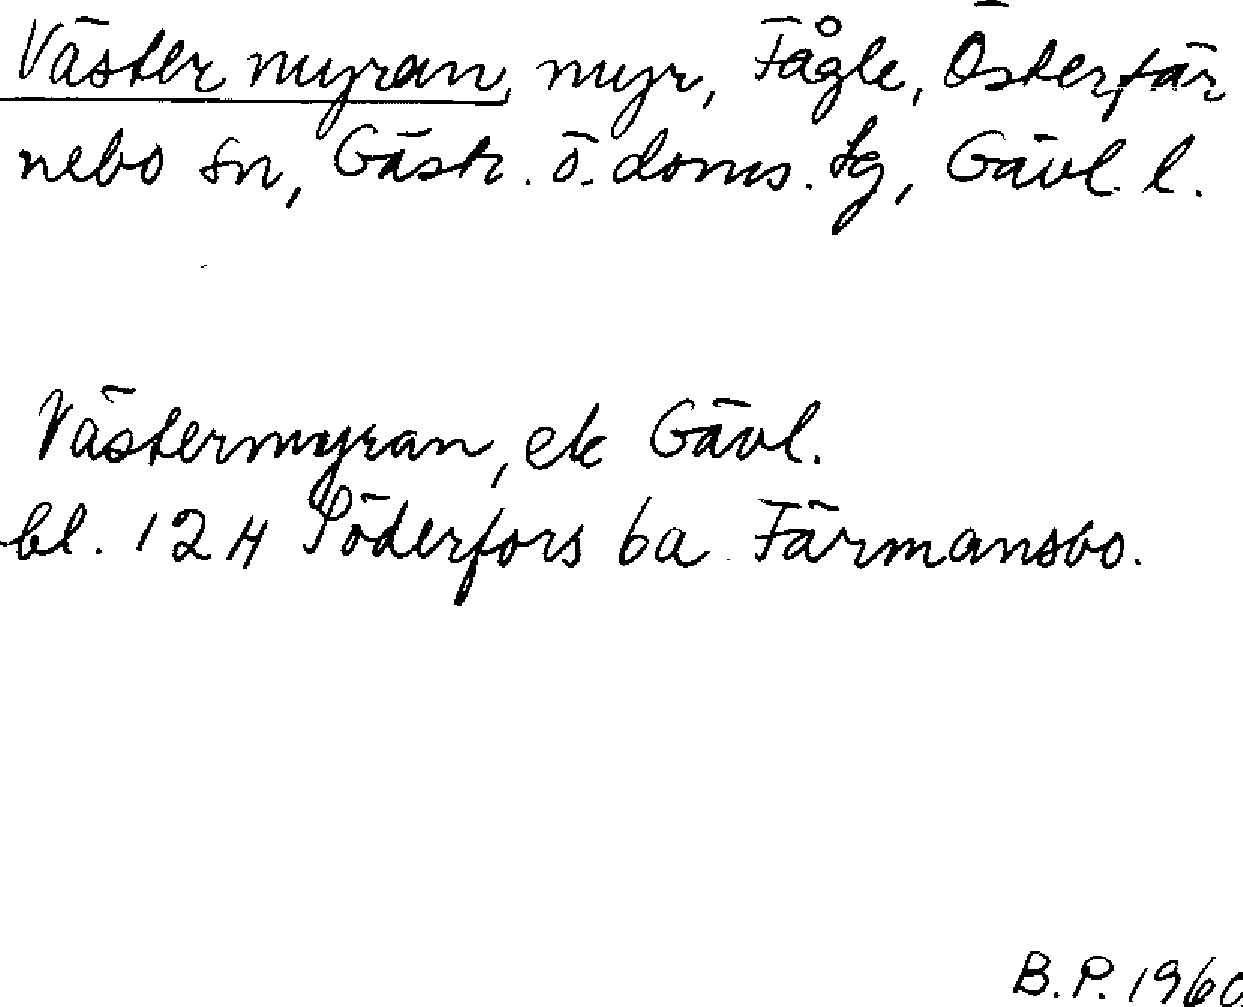 Väster myran, myr, Fågle, Österfär
nebo sn, Gästr. ö. doms. sg, Gävl. l.
Västermyran, ek Gävl.
bl. 12 H Söderfors 6a Färmansbo.
B. P. 1960